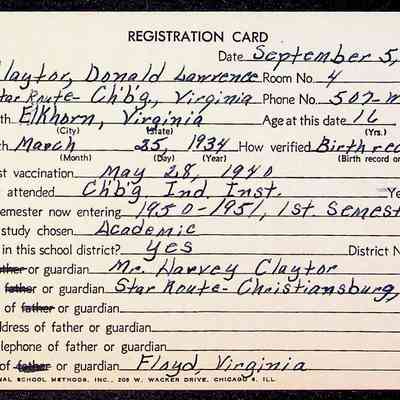 REGISTRATION CARD
Date September 5,
Claytor, Donald Lawrence Room No. 4
Star Route - Ch'b'g., Virginia Phone No. 507-W
th Elkhorn, Virginia Age at this date 16
(City) (State) (Yrs.)
th March 25, 1934 How verified Birth rec
(Month) (Day) (Year) (Birth record or
st vaccination May 28, 1940
attended Ch'b'g Ind. Inst. Ye
semester now entering 1950-1951, 1st. Semest
study chosen Academic
in this school district? yes District N
father or guardian Mr. Harvey Claytor
father or guardian Star Route - Christiansburg,
of father or guardian
ddress of father or guardian
elephone of father or guardian
of father or guardian Floyd, Virginia
NAL SCHOOL METHODS, INC., 205 W. WACKER DRIVE, CHICAGO 6, ILL.